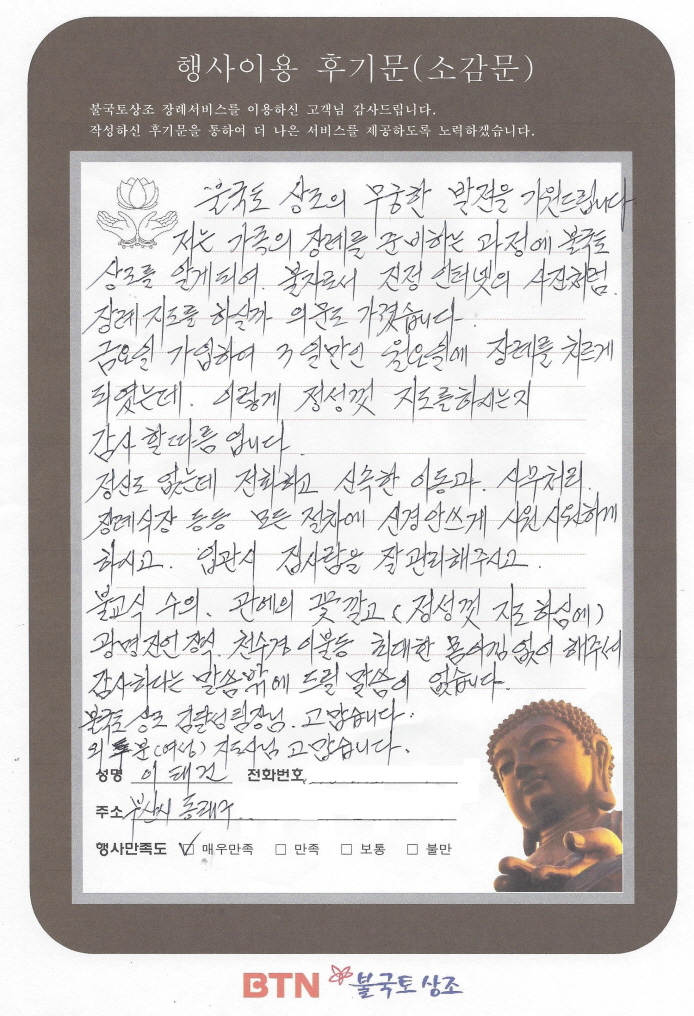 행사이용 후기문(소감문)
불국토상조 장례서비스를 이용하신 고객님 감사드립니다.
작성하신 후기문을 통하여 더 나은 서비스를 제공하도록 노력하겠습니다.
불국토 상조의 무궁한 발전을 기원드립니다
저는 가족의 장례를 준비하는 과정에 불국토
상조를 알게되여. 불자로서 진정 인터넷의 사진처럼.
장례지도를 하실까 의문도 가졌습니다.
금요일 가입하여 3일만인 월요일에 장례를 치르게
되였는데. 이렇게 정성껏 지도를하시는지
감사 할따름 입니다.
정신도 없는데 전화하고 신속한 이동과. 사무처리.
장례식장 등등 모든 절차에 신경안쓰게 시원시원하게
하시고. 입관시 집사람을 잘 관리해주시고.
불교식 수의. 관에의 꽃깔고 (정성껏 지도하심에)
광명진언 장식. 천수경 이불등 최대한 없이 해주셔
감사하다는 말씀밖에 드릴 말씀이 없습니다.
불국토 상조 김달성팀장님. 고맙습니다.
외 문(여성) 지도사님 고맙습니다.
성명 이태건 전화번호
주소 부산시 동래구
행사만족도 ☑ 매우만족 □ 만족 □ 보통 □ 불만
BTN 불국토상조